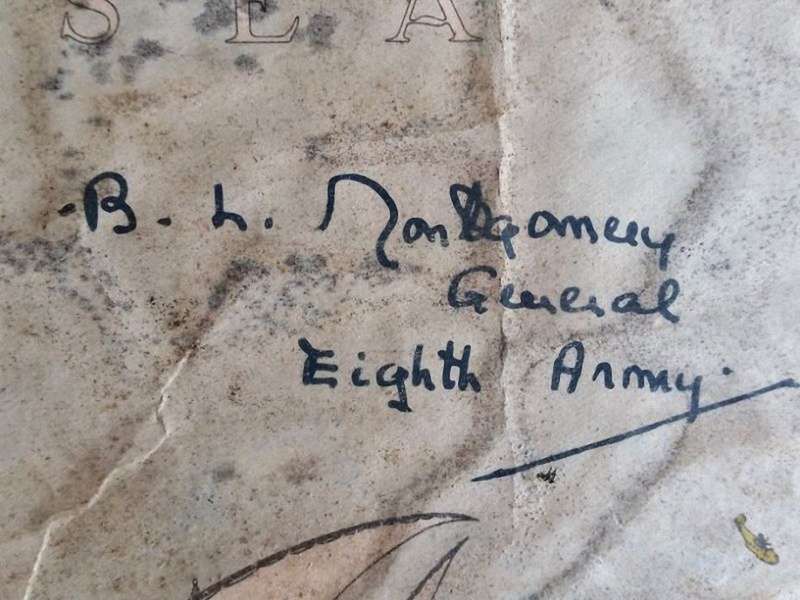 SEA
B. L. Montgomery
General
Eighth Army.